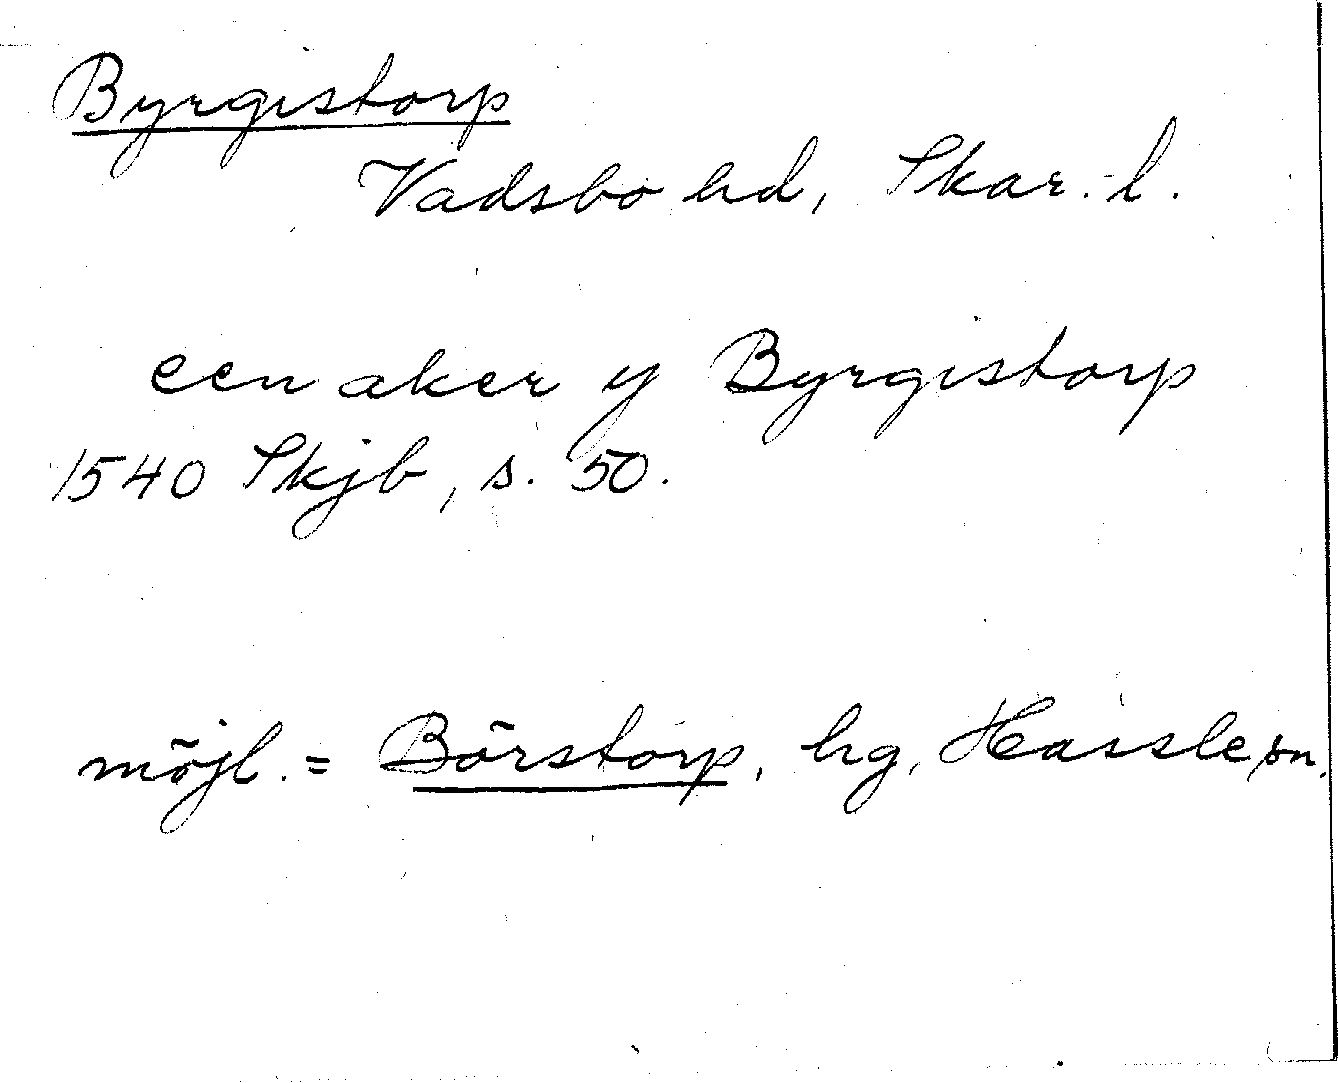 Byrgistorp
Vadsbo hd, Skar. l.
een aker y Byrgistorp
1540 Skjb, s. 50.
möjl. = Börstorp, hg, Hassle sn.